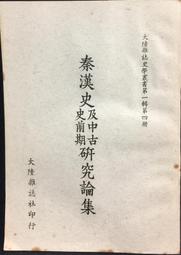 大陸雜誌史學叢書第一輯第四冊
秦漢史及中古史前期研究論集
大陸雜誌社印行